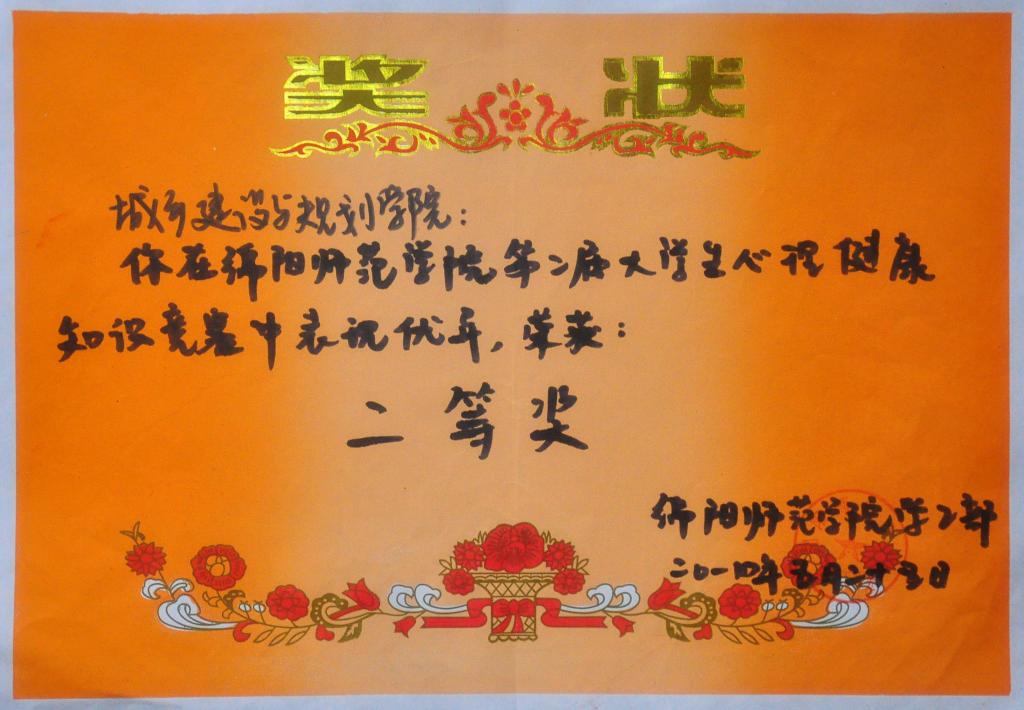 奖状
城乡建设与规划学院：
你在绵阳师范学院第二届大学生心理健康
知识竞赛中表现优异，荣获：
二等奖
绵阳师范学院学工部
二〇一四年五月二十三日